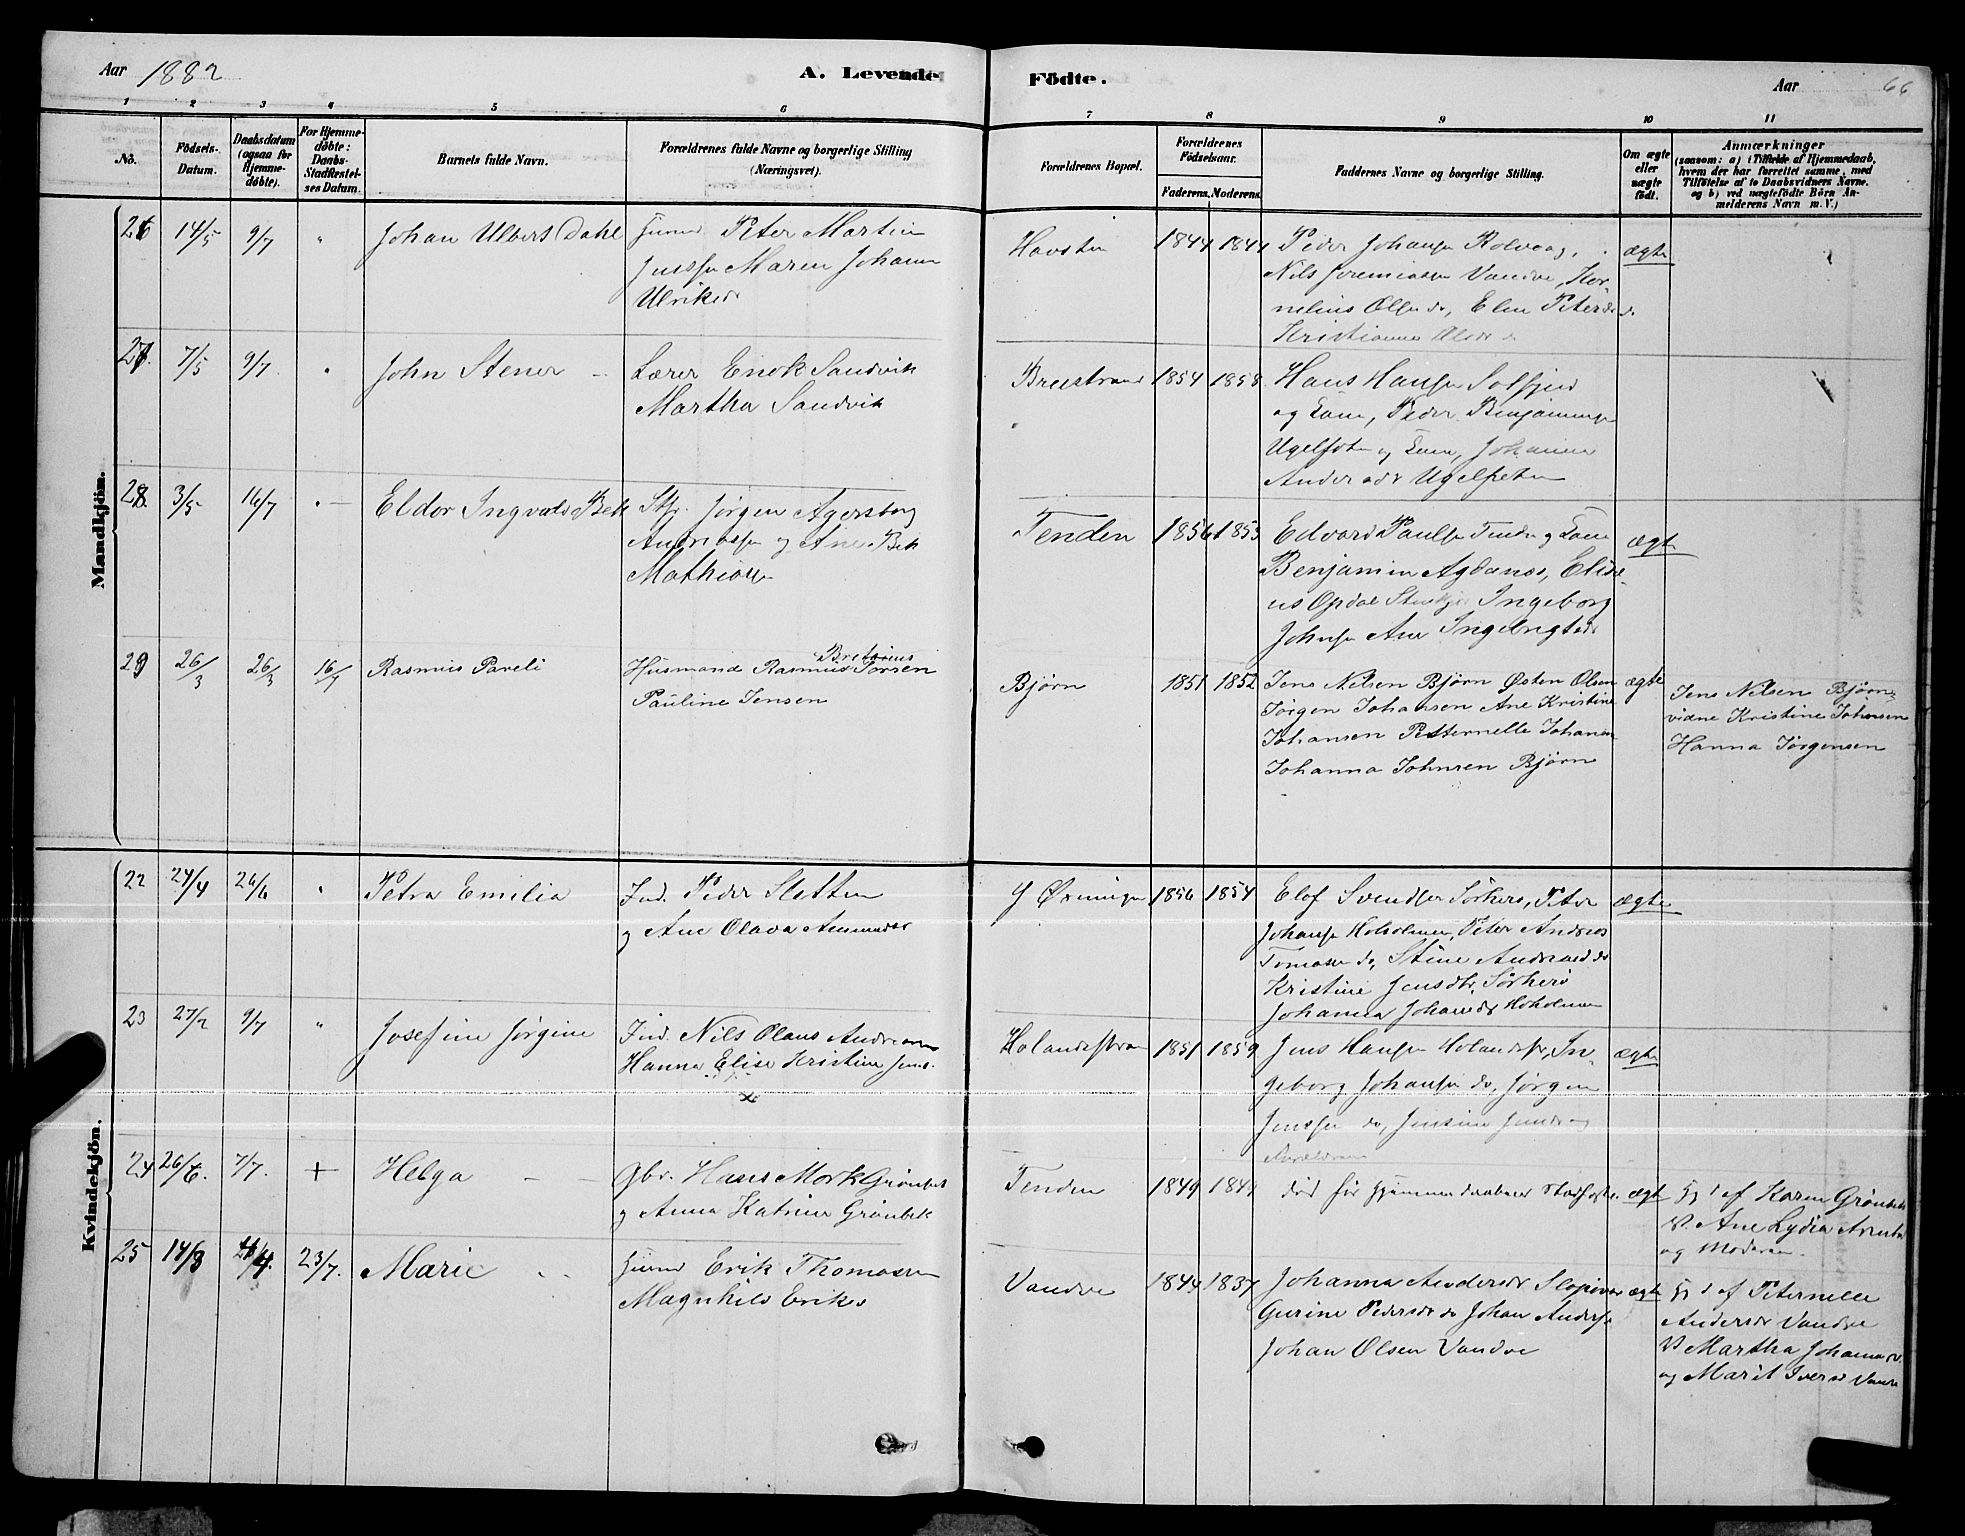 Aar 1882
A. Levende
Födte.
Aar
66
1 2 3 4 5 6 7 8 9 10 11
No.
Födsels-
Datum.
Daabsdatum
(ogsaa for
Hjemme-
döbte).
For Hjemme-
döbte:
Daabs-
Stadfæstel-
ses Datum.
Barnets fulde Navn.
Forældrenes fulde Navne og borgerlige Stilling
(Næringsvei).
Forældrenes Bopæl.
Forældrenes
Födselsaar.
Faderens. Moderens.
Faddernes Navne og borgerlige Stilling.
Om ægte
eller
uægte
födt.
Anmærkninger
(saasom: a) i Tilfælde af Hjemmedaab,
hvem der har forrettet samme, med
Tilföielse af to Daabsvidners Navne.
og b) ved uægtefödte Börn An-
melderens Navn m.V.)
Mandkjön.
26 14/5 9/7 " Johan Ulbert Dahl
Peter Martin
Maren Johanna
Ulriksdr
Havsten 1844 1844
Peder Johansen Rolvaag,
Nils Jeremiassen Vandve, Kor-
nelius Olsen do, Elen Petersdr do
Kristianna Olsdr do
ægte
27 7/5 9/7 " John Stener
Lærer Enok Sandvik
Martha Sandvik
Breistrand 1854 1858
Hans Hansen Solfjeld
og Kone, Peder Benjaminsen
og Kone, Johanna
Andersdr
28. 3/5 16/7 " Eldor Ingvald Bek
Jørgen Agersborg
Andreassen og Ane Bek
Mathiassen
Tenden 1856 1853
Edvard Paulsen Tenden og Kone
Benjamin Agdanes, Elise-
us Opdal Ingeborg
Johnsen Ane Ingebrigtsdr
ægte
29 26/3 26/3 16/7 Rasmus Pareli
Husmand Rasmus Bretorius Sørsen
Pauline Jensen
Bjørn 1851 1852
Jens Nilsen Bjørn Østen Olsen
Jørgen Johansen Ane Kristine
Johansen Petternelle Johansen
Johanna Johnsen Bjørn
ægte
Jens Nilsen Bjørn
vidne Kristine Johnsen
Hanna Jørgensen
Kvindekjön.
22 24/4 26/6 " Petra Emilia
Ind. Peder Sletten
og Ane Olava Amundsdr
1856 1854
Elof Svendsen Sørherø, Peter
Johansen Hoholmen, Peter Andreas
Tomassen do, Stine Andreasdr do
Kristine Jensdtr. Sørherø
Johanna Johansdr Hoholmen
ægte
23 27/2 9/7 " Josefine Jørgine
Ind. Nils Olaus Andreassen
Hanna Elise Kristine Jensd.
x
Holandsstran 1851 1859
Jens Hansen Holandsstr, In-
geborg Johansen do, Jørgen
Jenssen do, Jensine Jensdr og
Forældrene
ægte
24 26/6. 7/7. + Helga
Gbr. Hans Mork Grønbek
og Anna Katrine Grønbek
Tenden 1849
død før Hjemmedaaben Stadfæstes
ægte
hjd af Karen Grønbek
V. Ane Lydia
og Moderen.
25 14/3 4/4. 23/7. Marie
Erik Thomassen
Magnhild Eriksd
Vandve 1844 1837
Johanna Andersdr Slapøvær
Gurine Pedersdr do Johan Andersen
Johan Olsen Vandve
ægte
hjd af Peternelle
Andersdr Vandve
V. Martha Johansdr
og Marit Iversdr Vandve